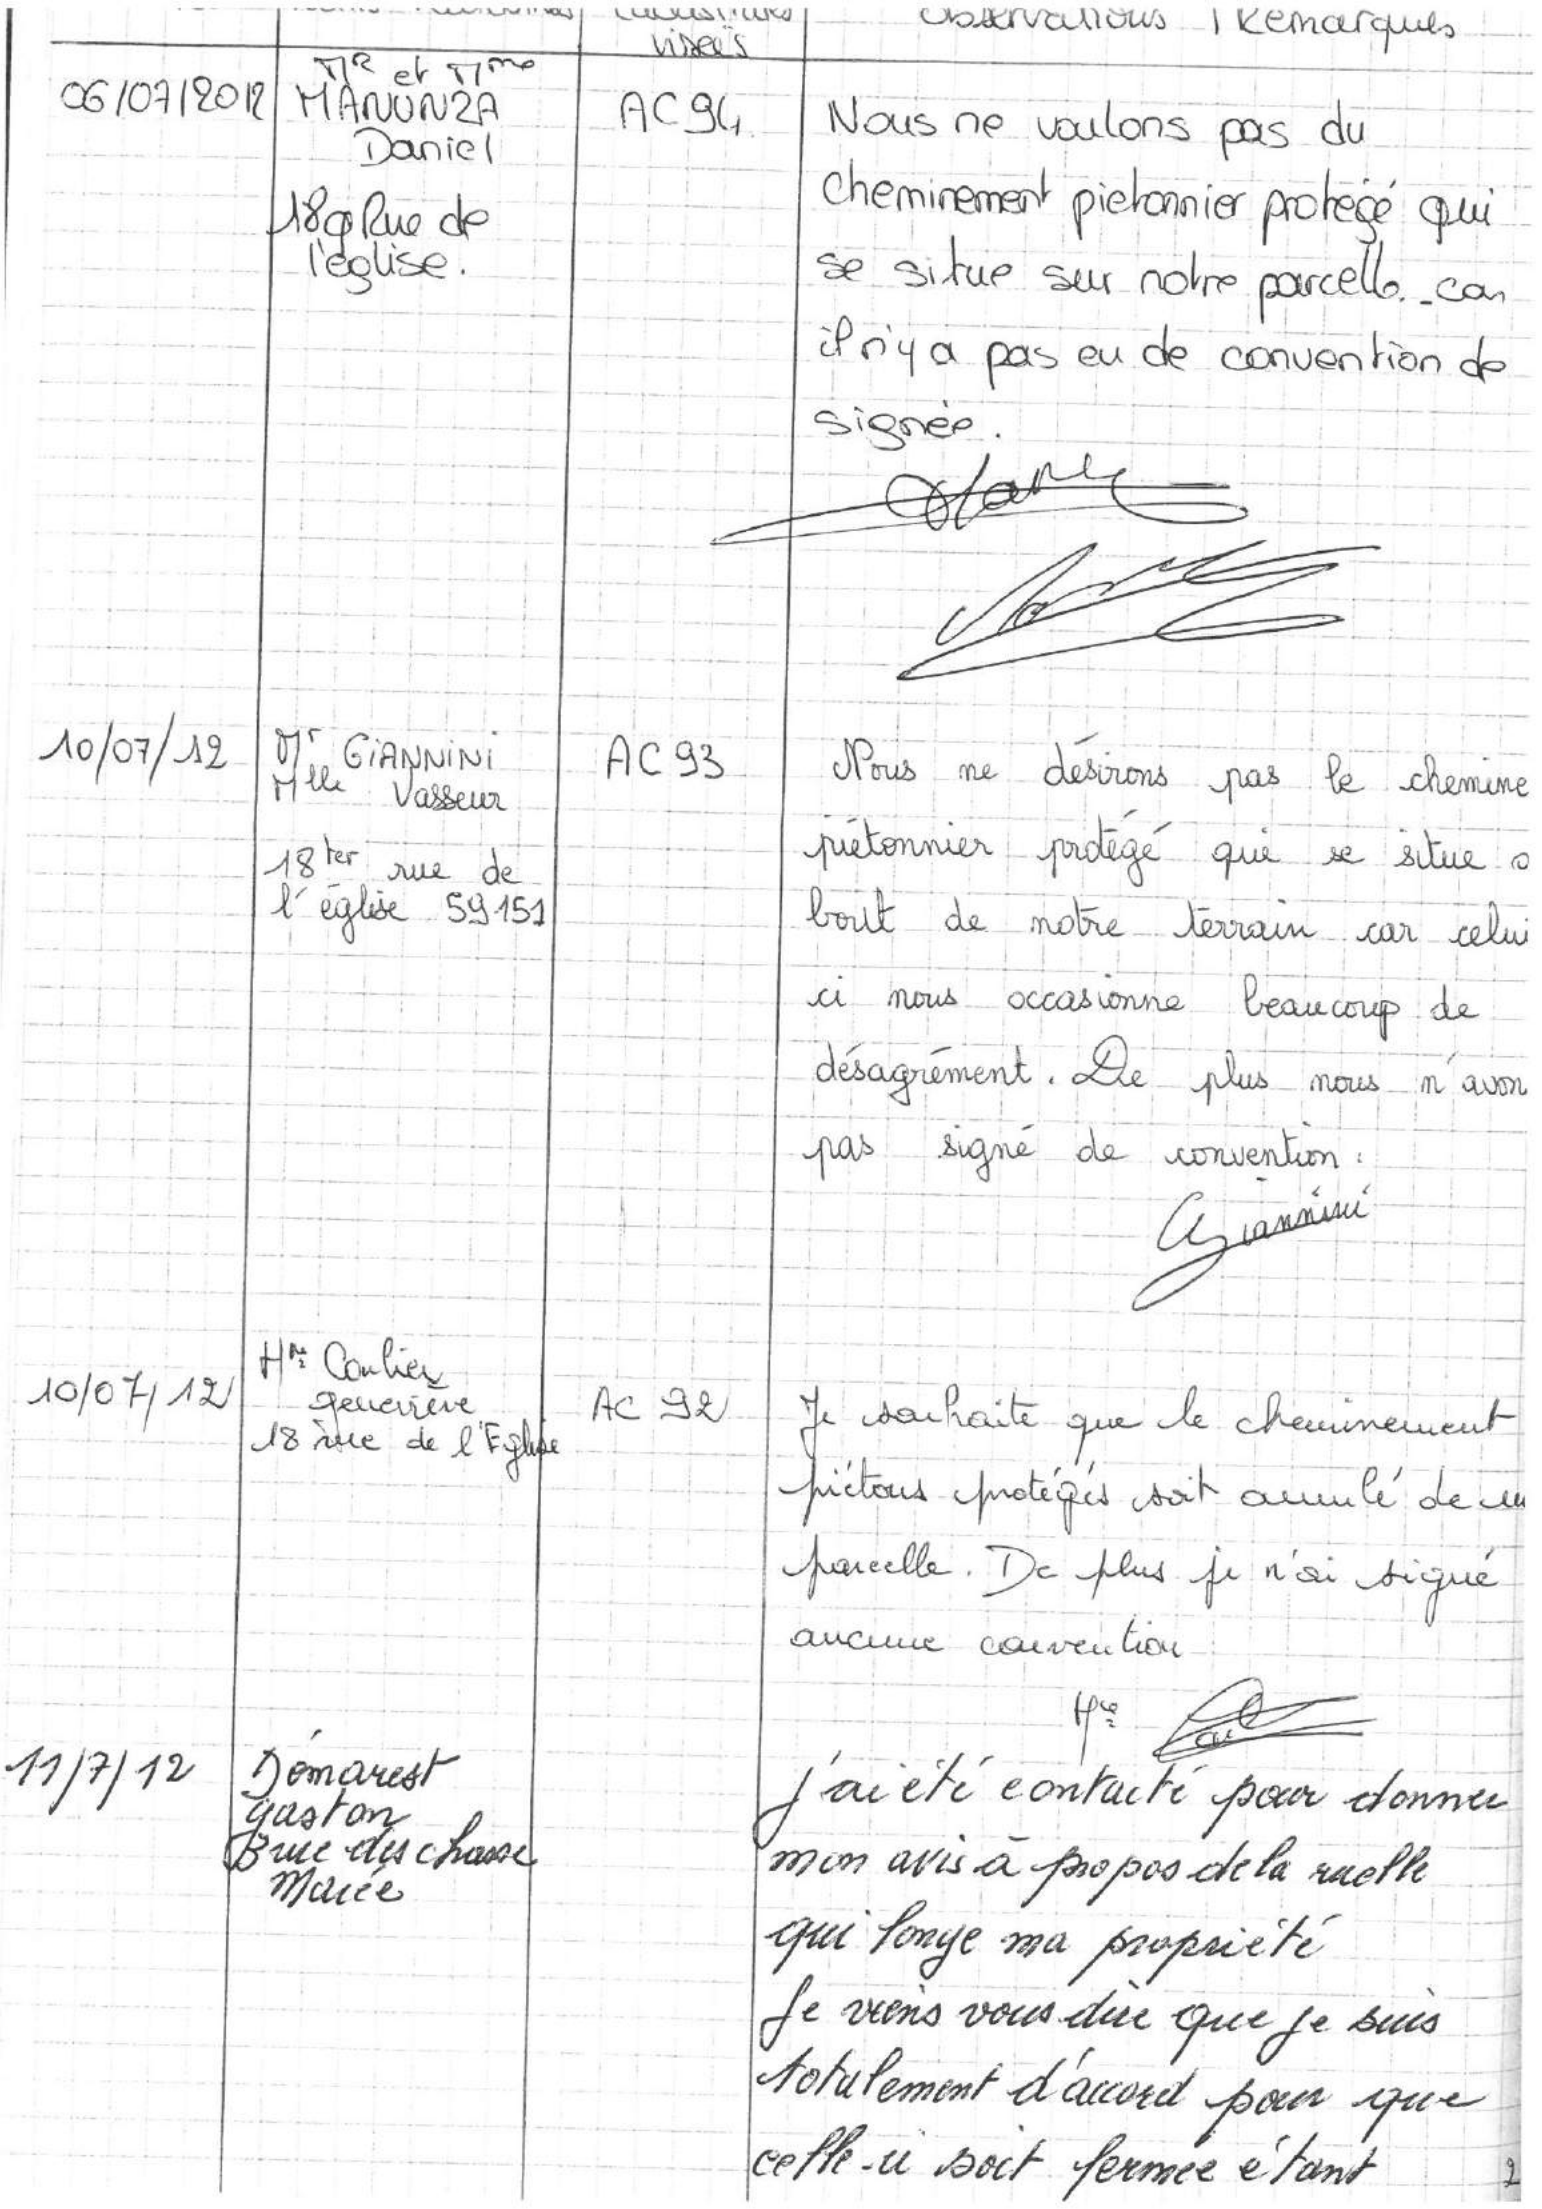 Observations / Remarques
visées
06/07/2012
MR et Mme
MANUNZA
Daniel
18q Rue de
l'église.
AC 94
Nous ne voulons pas du
cheminement pietonnier protégé qui
se situe sur notre parcelle. car
il n'y a pas eu de convention de
signée.
10/07/12
Mr GIANNINI
Mlle Vasseur
18 ter rue de
l'église 59151
AC 93
Nous ne désirons pas le chemine
piétonnier protégé qui se situe
bout de notre terrain car celui
ci nous occasionne beaucoup de
désagrément. De plus nous n'avon
pas signé de convention.
Giannini
10/07/12
geneviève
18 rue de l'Eglise
AC 92
Je souhaite que le cheminement
piétons protégés soit annulé de
parcelle. De plus je n'ai signé
aucune convention
11/7/12
Démarest
gaston
3 rue des chasse
Marée
j'ai été contacté pour donner
mon avis à propos de la ruelle
qui longe ma propriété
Je viens vous dire que je suis
totalement d'accord pour que
celle-ci soit fermée étant
2